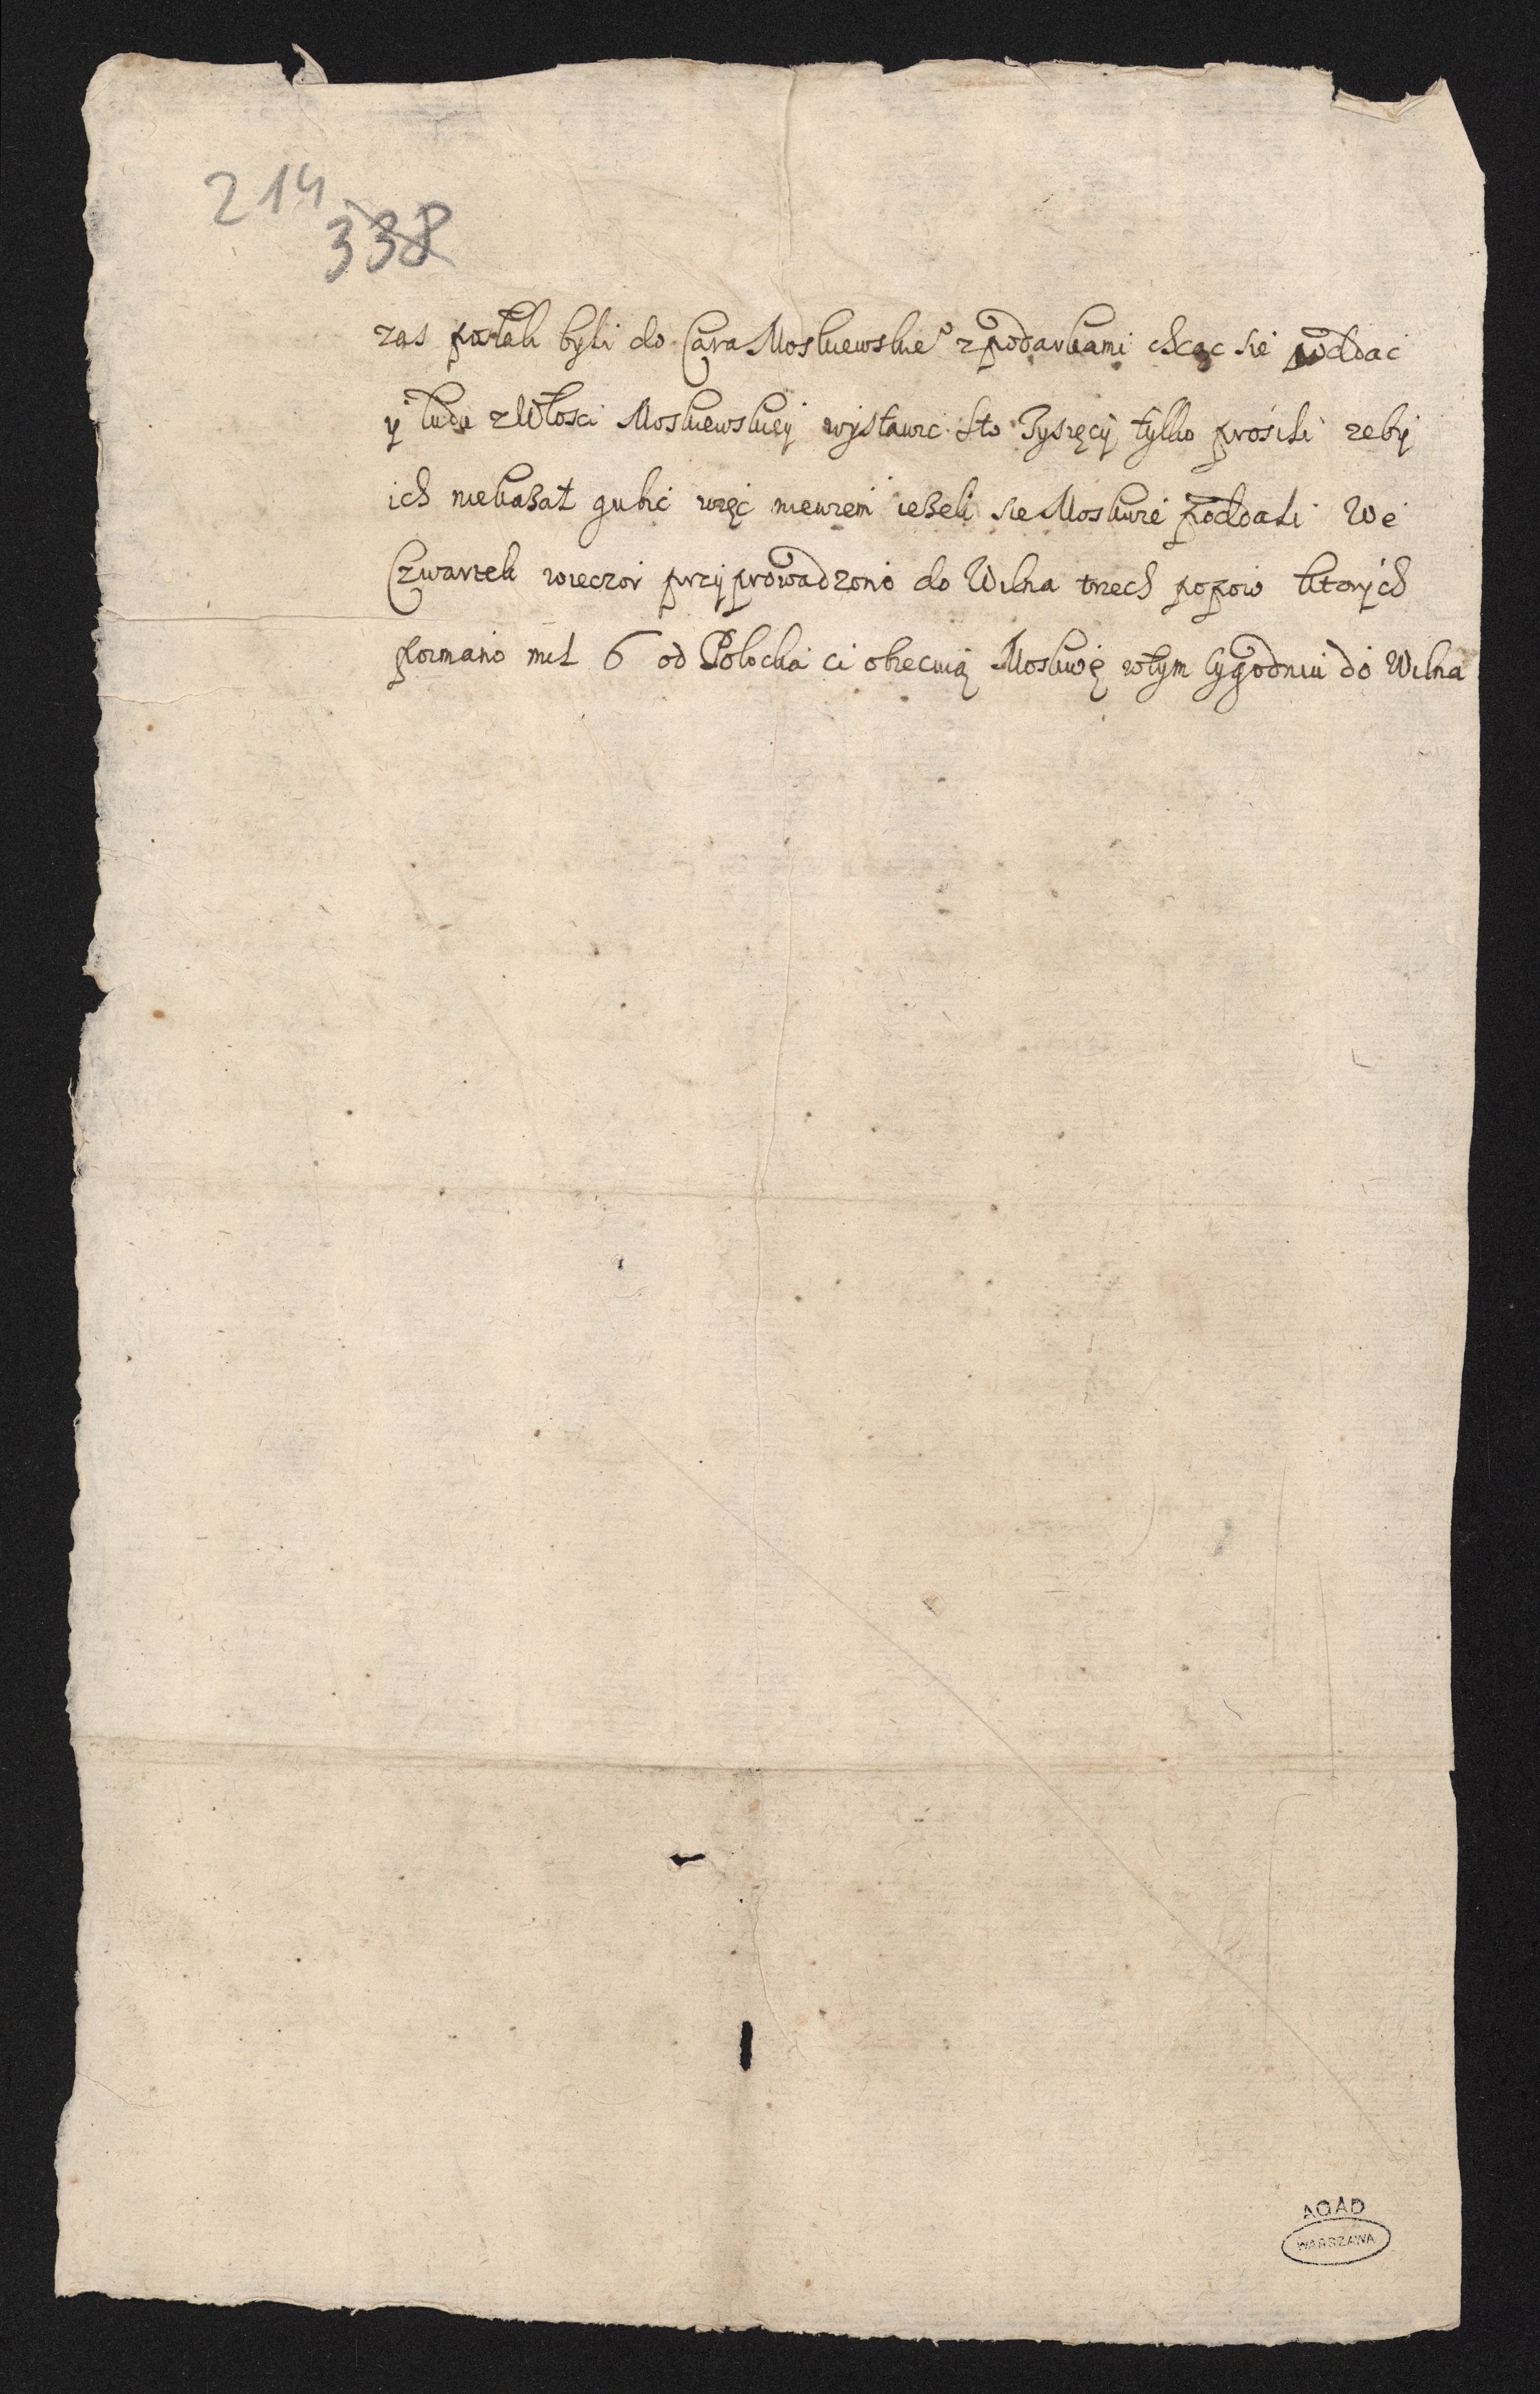 214
338
zas posłali byli do Cara Moskiewskie° z podarkami chcąc sie poddac
y ludu z Włosci Moskiewskiey wystawic sto Tysięcy tylko prosili zeby
ich niekazał gubic więc niewiem iezeli sie Moskwie poddali We
Czwartek wieczor przyprowadzono do Wilna trzech popow ktorych
poimano mil 6 od Połocka ci obiecuią Moskwę w tym tygodniu do Wilna
AGAD
WARSZAWA